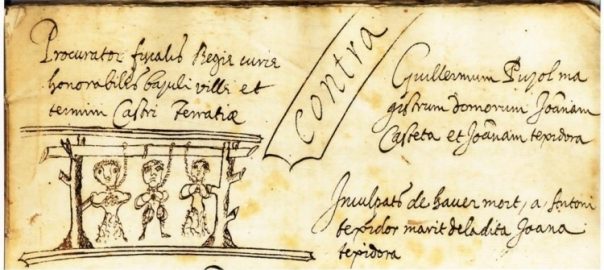 Procurator fiscalis Regie curie
honorabilis bajuli ville et
termini Castri Terratiæ
contra
Guillermum Pujol ma
gistrum domorum Joãnam
Casteta et Joãnam texidora
Inculpats de haver mort, a Antoni
texidor marit de la dita Joana
texidora